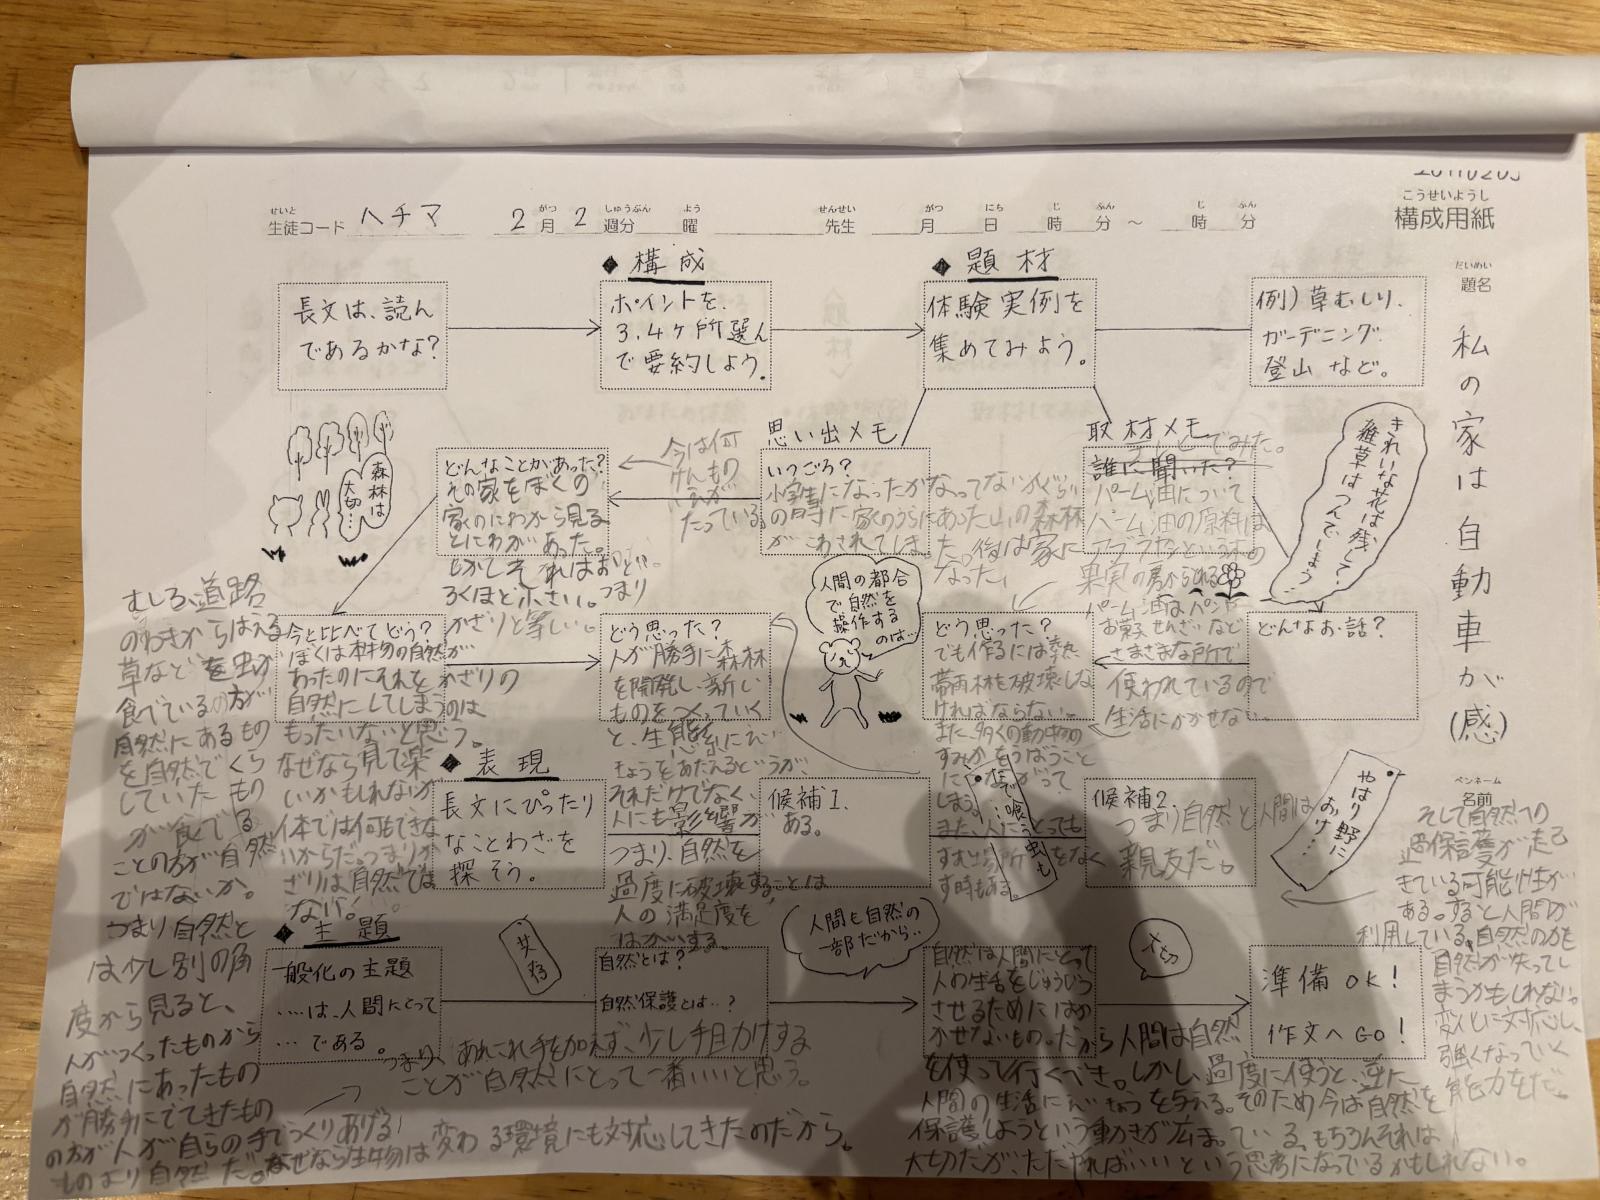 こうせいようし
構成用紙
せいと
生徒コード ハチマ
がつ しゅうぶん よう
2月 2週分 曜
せんせい
先生
がつ にち じ ふん じ ふん
月 日 時 分 ～ 時 分
だいめい
題名
私の家は自動車が(感)
ペンネーム
名前
長文は、読ん
であるかな?
◆ 構成
ポイントを、
3.4ヶ所選ん
で要約しよう。
◆ 題材
体験実例を
集めてみよう。
例)草むしり、
ガーデニング
登山など。
きれいな花は残して、
雑草はつんでしまう…
取材メモ
誰に聞いた?
パーム油について
パーム油の原料は
アブラヤシという木の
果実の房からとれる
パーム油はパンや
お菓子せんざいなど
さまざまな所で
使われているので
生活にかかせない。
どんなお話?
思い出メモ
いつごろ?
小学生になったかなってないかぐらい
の時に家のうらにあった山の森林
がこわされてしまった。後は家に
なった。
今は何
けんもの
家が
たっている。
どんなことがあった?
その家をぼくの
家のにわから見る
とにわがあった。
つまり
かざりと等しい。
森林は
大切…
今と比べてどう?
ぼくは本物の自然が
あったのにそれをかざりの
自然にしてしまうのは
もったいないと思う。
なぜなら見て楽
しいかもしれないが
1本では何もできな
いからだ。つまりか
ざりは自然では
ない。
どう思った?
人が勝手に森林
を開発し、新しい
ものをつくっていく
と、生態系にえい
きょうをあたえるというが、
それだけでなく、
人にも影響が
つまり、自然を
過度に破壊することは
人の満足度を
はかいする。
人間の都合
で自然を
操作する
のは…
どう思った?
でも作るには熱
帯雨林を破壊しな
ければならない。
また、多くの動物の
すみかをうばうこと
につながって
しまう。
また、人にとっても
すむ場所をなく
す時もある。
◆ 表現
長文にぴったり
なことわざを
探そう。
候補1.
ある。
候補2.
つまり自然と人間は
親友だ。
やはり野に
おけ…
◆ 主題
一般化の主題
‥‥は、人間にとって
…である。
共存
自然とは?
自然保護とは‥?
人間も自然の
一部だから‥
自然は人間にとって
人の生活をじゅうじつ
させるためにはか
かせないもの。だから人間は自然
を使って行くべき。しかし過度に使うと、逆に
人間の生活にえいきょうを与える。そのため今は自然を
保護しようという動きが広まっている。もちろんそれは
大切だが、ただやればいいという思考になっているかもしれない。
大切
準備OK!
作文へGO!
そして自然への
過保護が走る
きている可能性が
ある。すると人間が
利用している、自然の力を
自然が失ってし
まうかもしれない。
変化に対応し、
強くなっていく
能力をだ。
つまり、あれこれ手を加えず、少し手助けする
ことが自然にとって一番いいと思う。
むしろ、道路
のわきからはえる
草などを虫が
食べている方が
自然にあるもの
を自然でくら
していたもの
が食べる
ことの方が自然
ではないか。
つまり自然と
は少し別の角
度から見ると、
人がつくったものから
自然にあったもの
が勝手にでてきたもの
の方が人が自らの手でつくりあげる
ものより自然だ。なぜなら生物は変わる環境にも対応してきたのだから。